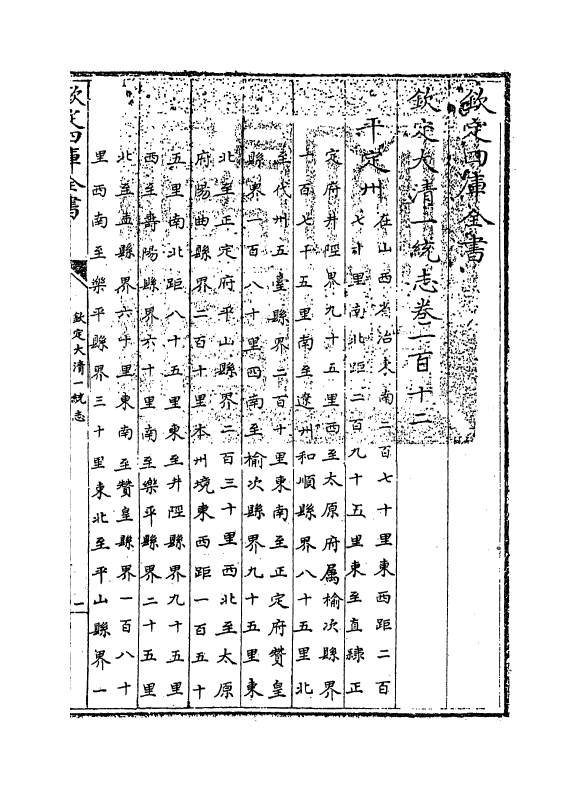 欽定四庫全書
欽定大清一統志卷一百十二
平定州 在山西省治東南二百七十里東西距二百
七十里南北距二百九十五里東至直隸正
定府井陘界九十五里西至太原府屬榆次縣界
一百七十五里南至遼州和順縣界八十五里北
至代州五臺縣界二百十里東南至正定府贊皇
縣界一百八十里西南至榆次縣界九十五里東
北至正定府平山縣界二百三十里西北至太原
府陽曲縣界二百十里本州境東西距一百五十
五里南北距八十五里東至井陘縣界九十五里
西至壽陽縣界六十里南至樂平縣界二十五里
北至盂縣界六十里東南至贊皇縣界一百八十
里西南至樂平縣界三十里東北至平山縣界一
欽定四庫全書
欽定大清一統志
一